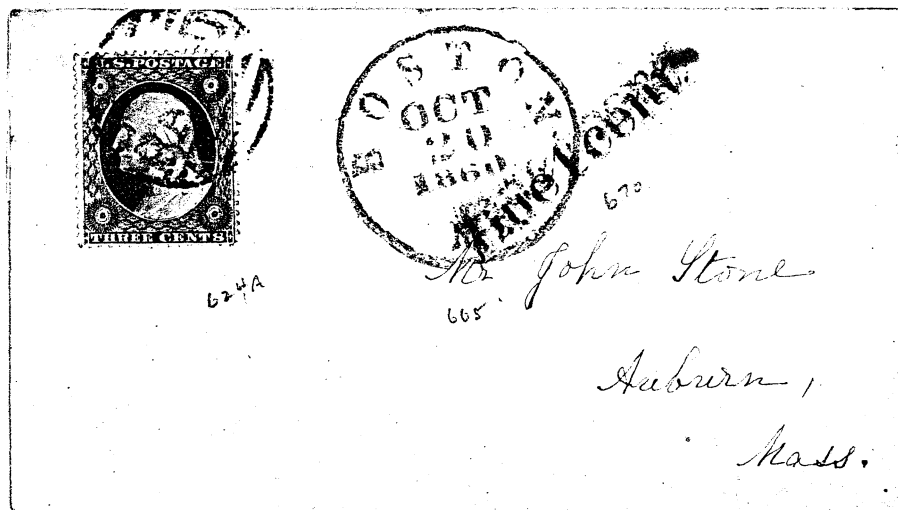 U.S. POSTAGE
THREE CENTS
BOSTON
OCT
20
1860
Due 1 cent
670
624A
Mr John Stone
665
Auburn,
Mass.